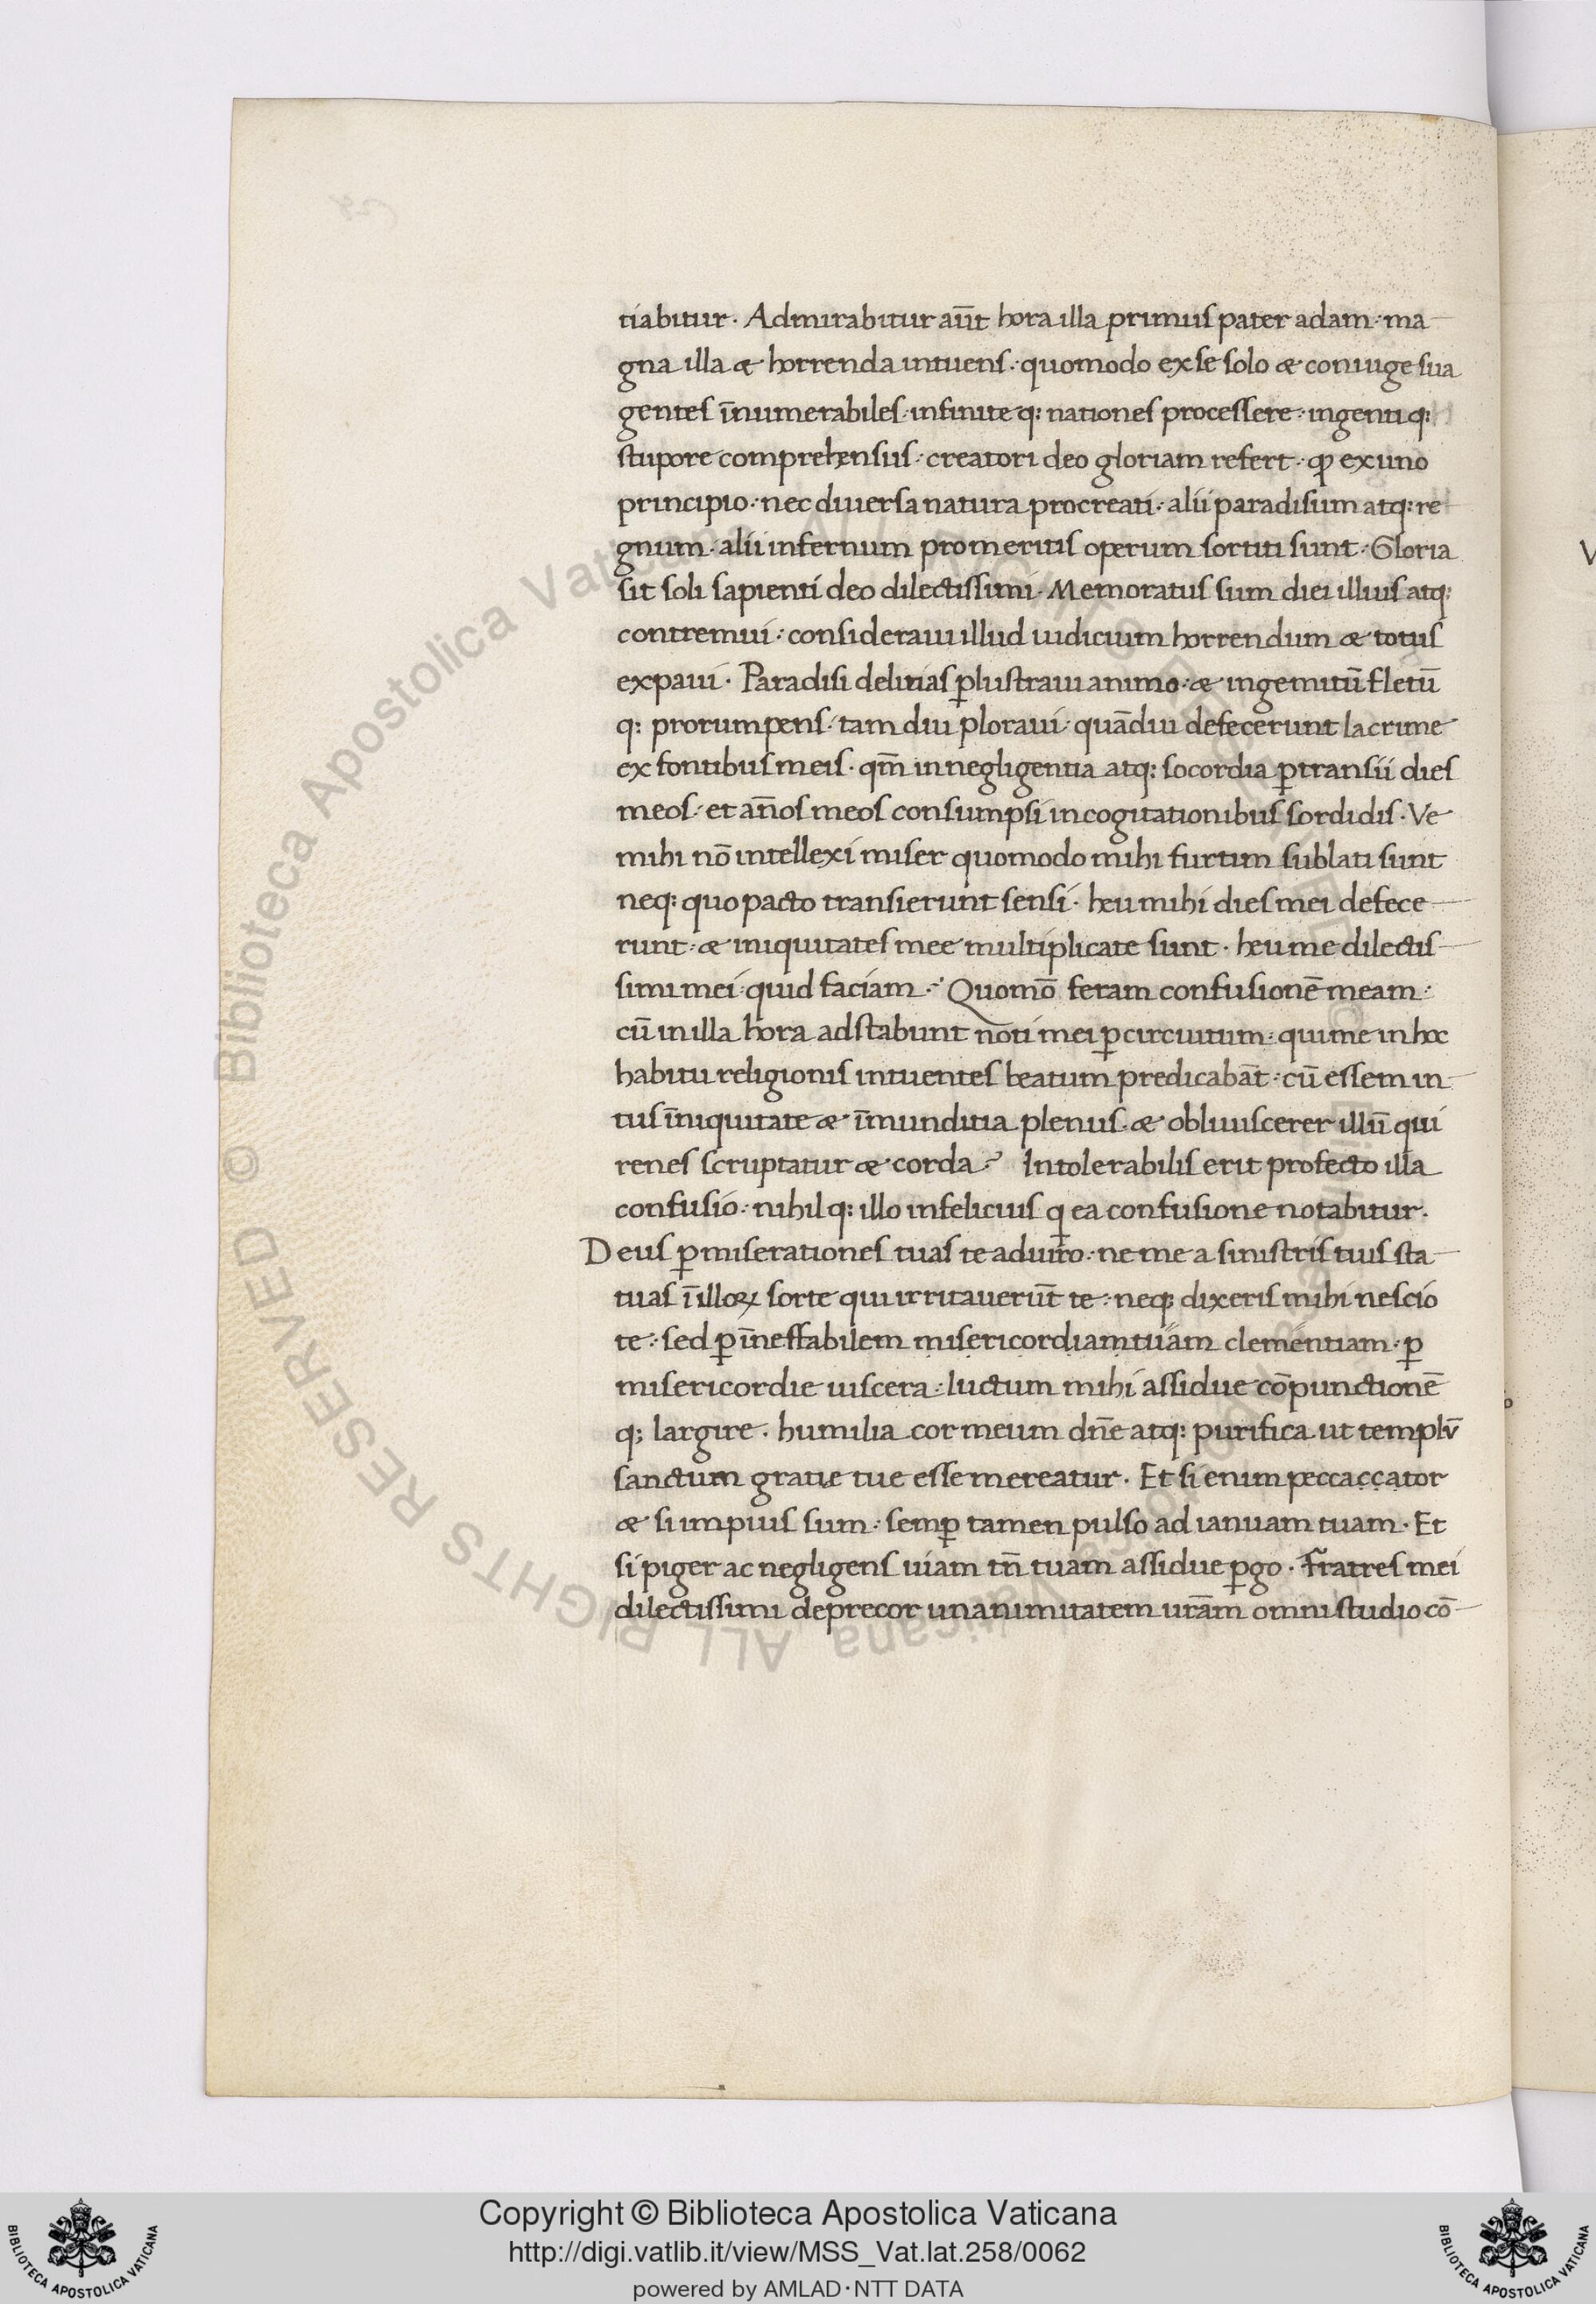 tiabitur. Admirabitur aūt hora illa primus pater adam: ma
gna illa & horrenda intuens: quomodo ex se solo & coniuge sua
gentes īnumerabiles infinite q: nationes processere: ingenti q:
stupore comprehensus: creatori deo gloriam refert: ꝙ ex uno
principio: nec diuersa natura procreati: alii paradisum atq: re
gnum. alii infernum pro meritis operum sortiti sunt. Gloria
sit soli sapienti deo dilectissimi. Memoratus sum diei illius atq:
contremui: consideraui illud iudicium horrendum & totus
expaui. Paradisi delitias ꝑlustraui animo: & ingemitū fletū
q: prorumpens. tam diu ploraui. quādiu defecerunt lacrime
ex fontibus meis. qm̄ in negligentia atq: socordia ꝑtransii dies
meos. et an̄os meos consumpsi in cogitationibus sordidis. Ve
mihi nō intellexi miser quomodo mihi furtim sublati sunt
neq: quo pacto transierunt sensi. heu mihi dies mei defece
runt: & iniquitates mee multiplicate sunt. heu me dilectis
simi mei: quid faciam? Quomō feram confusionē meam:
cū in illa hora adstabunt noti mei ꝑ circuitum: qui me in hoc
habitu religionis intuentes beatum predicabāt: cū essem in
tus īniquitate & īmunditia plenus. & obliuiscerer illū qui
renes scruptatur & corda? Intolerabilis erit profecto illa
confusio: nihil q: illo infelicius q ea confusione notabitur.
Deus ꝑ miserationes tuas te adiuro: ne me a sinistris tuis sta
tuas ī illoꝝ sorte qui irritauerūt te: neq: dixeris mihi nescio
te: sed ꝑ īneffabilem misericordiam tuam clementiam. ꝑ
misericordie uiscera: luctum mihi assidue cōpunctionē
q; largire. humilia cor meum dn̄e atq: purifica ut templū
sanctum gratie tue esse mereatur. Et si enim peccaccator
& si impius sum: semꝑ tamen pulso ad ianuam tuam. Et
si piger ac negligens uiam tn̄ tuam assidue ꝑgo. Fratres mei
dilectissimi deprecor unanimitatem ur̄am omni studio cō
Copyright © Biblioteca Apostolica Vaticana
http://digi.vatlib.it/view/MSS_Vat.lat.258/0062
powered by AMLAD·NTT DATA